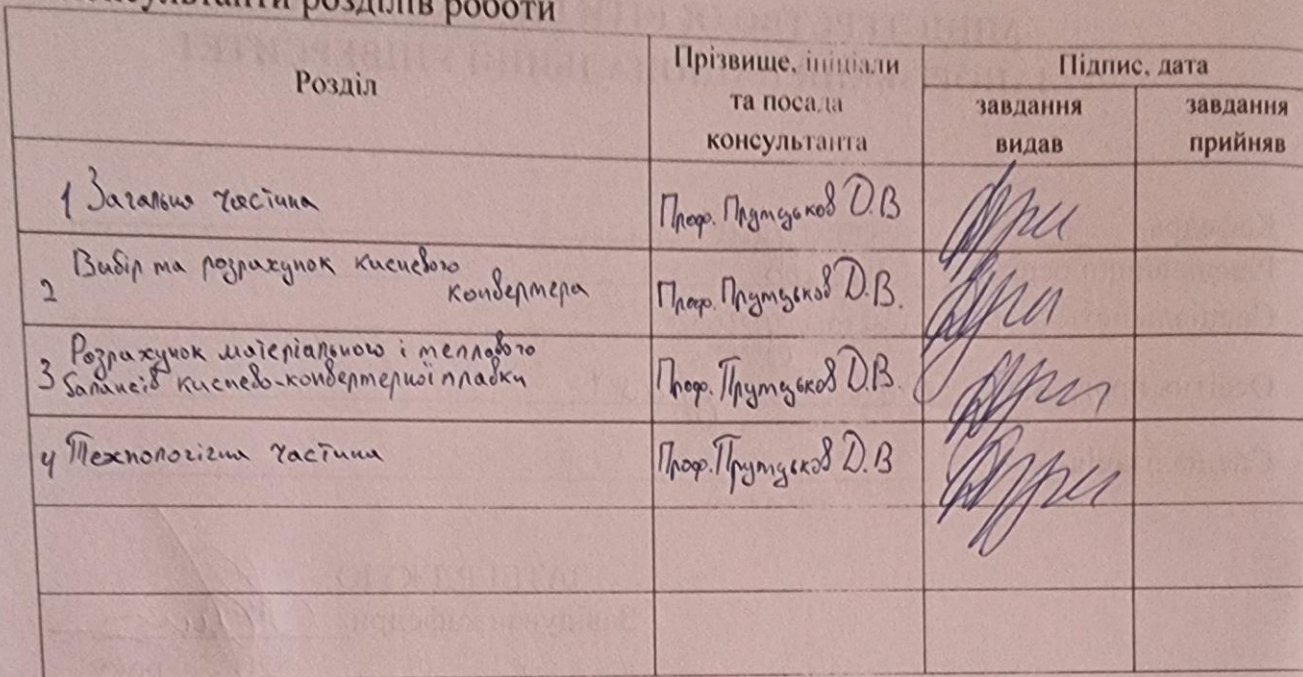 розділів роботи
Розділ
Прізвище, ініціали
та посада
консультанта
Підпис, дата
завдання
видав
завдання
прийняв
1 Загальна частина
Проф. Прутцьков Д.В
2 Вибір та розрахунок кисневого
конвертера
Проф. Прутцьков Д.В.
3 Розрахунок матеріального і теплового
балансів киснево-конвертерної плавки
Проф. Прутцьков Д.В.
4 Технологічна частина
Проф. Прутцьков Д.В